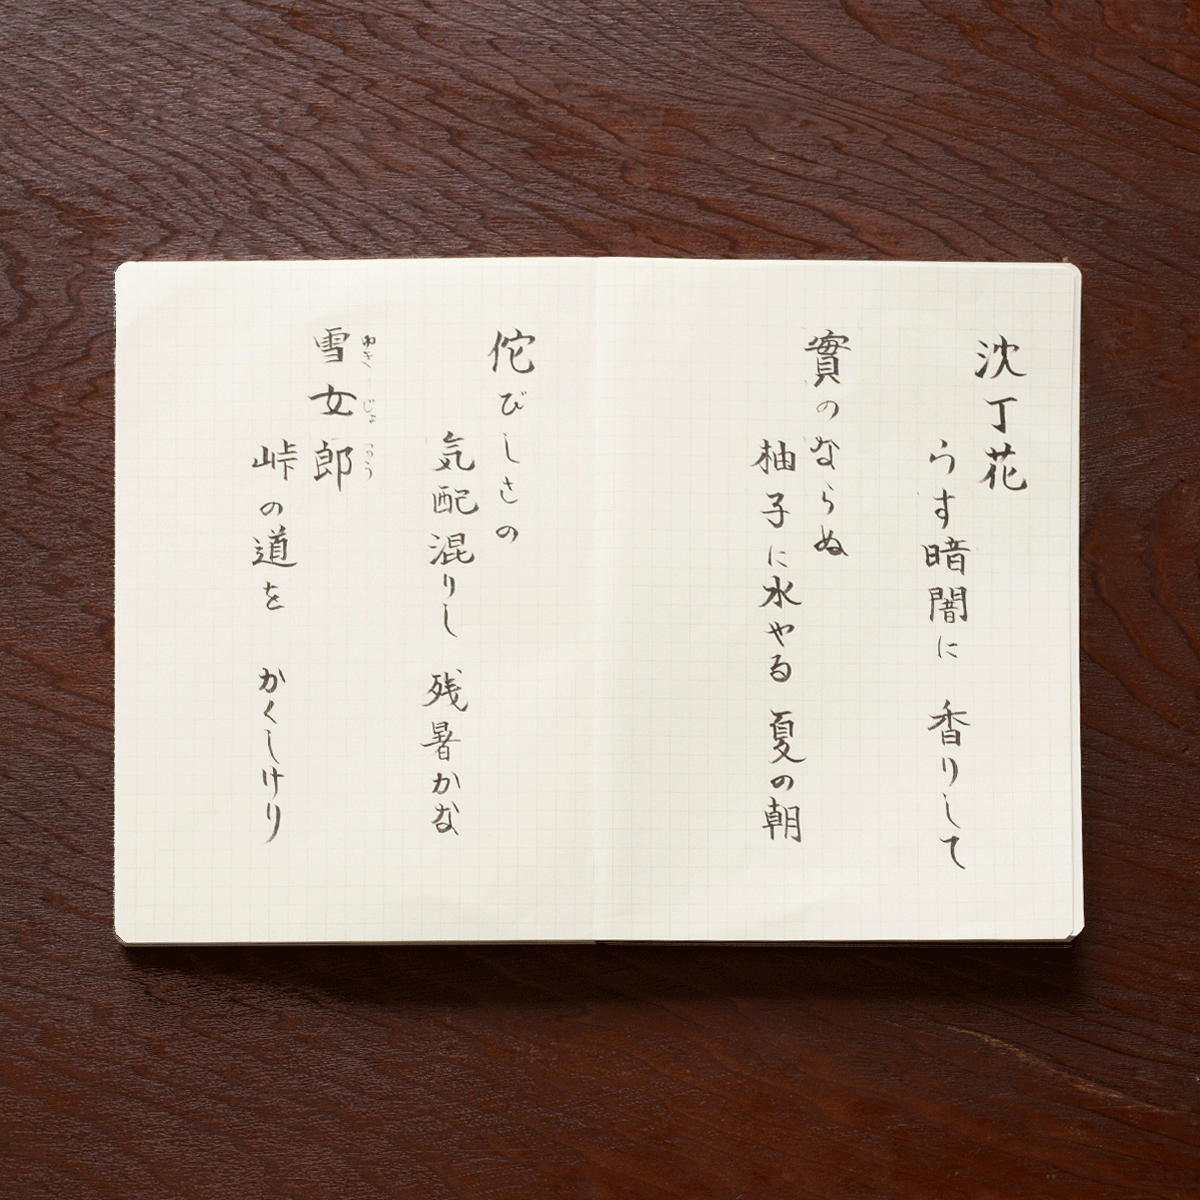 沈丁花
うす暗闇に 香りして
實のならぬ
柚子に水やる 夏の朝
侘びしさの
気配混りし 残暑かな
ゆき じょ ろう
雪女郎
峠の道を かくしけり